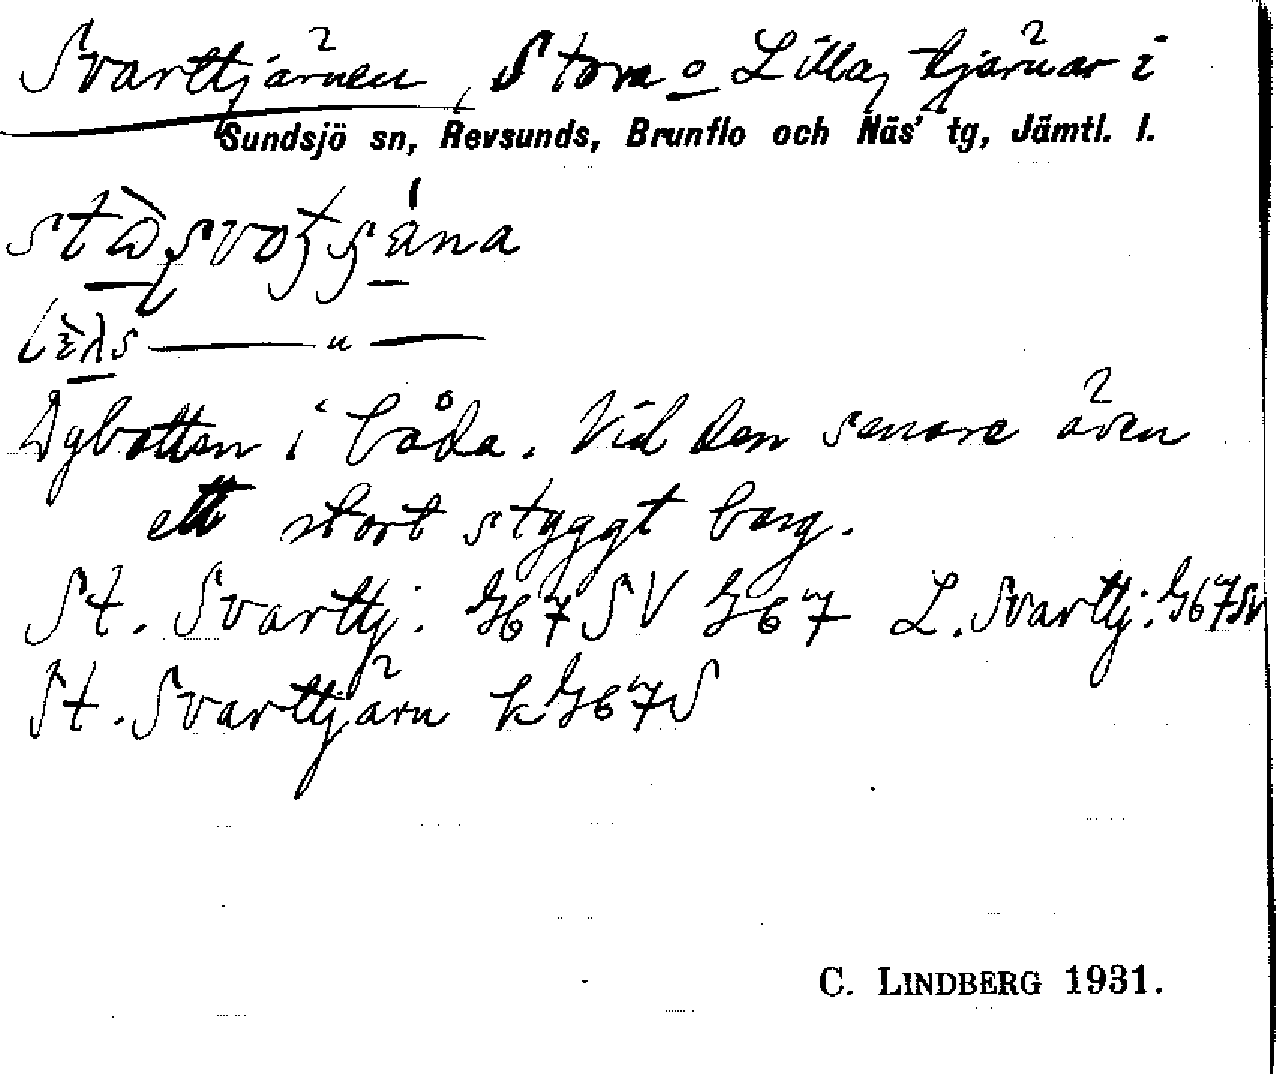 Svarttjärnen, Stora o Lilla, tjärnar i
Sundsjö sn, Revsunds, Brunflo och Näs' tg, Jämtl. l.
Dybotten i båda. Vid den senare även
ett stort styggt berg.
St. Svarttj: Hb7SV Hb7 L. Svarttj: Hb7SV
St. Svarttjärn k Hb7S
C. LINDBERG 1931.